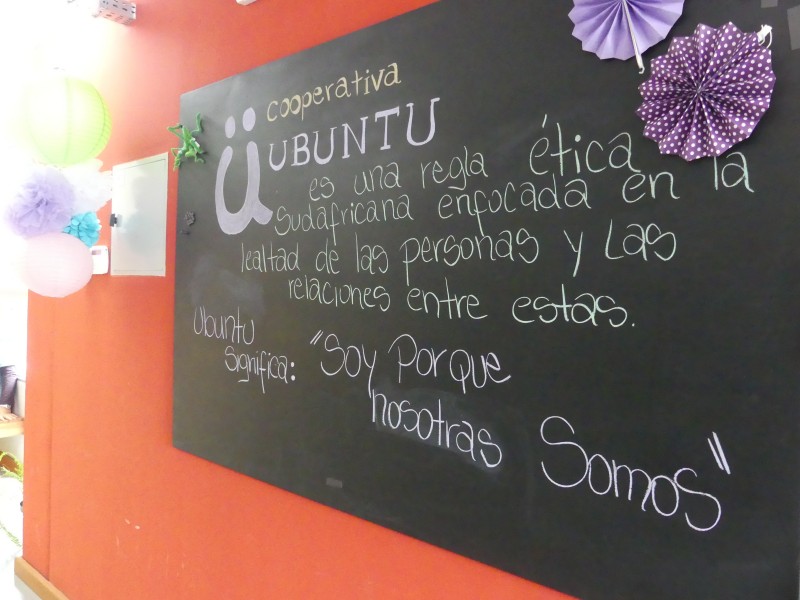 cooperativa
ü UBUNTU
es una regla ética
sudafricana enfocada en la
lealtad de las personas y las
relaciones entre estas.
Ubuntu
significa: "Soy Porque
nosotras Somos"